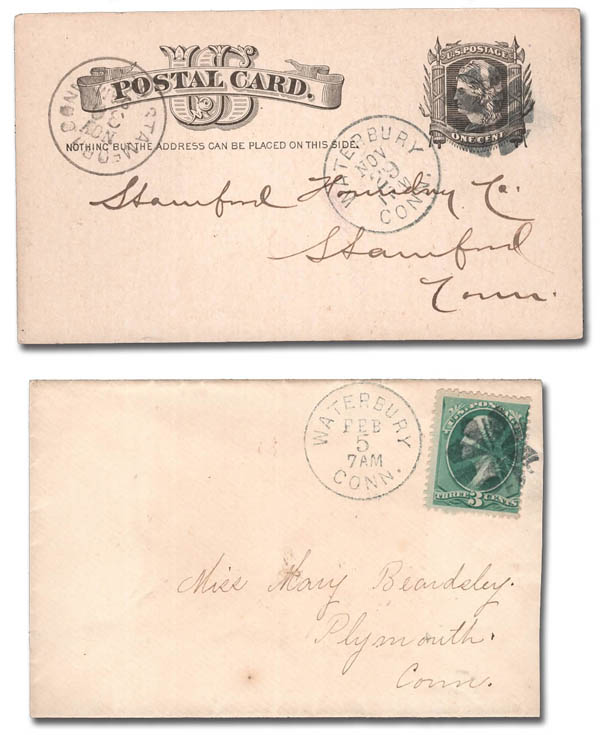 US
POSTAL CARD.
U.S. POSTAGE
ONE CENT
NOTHING BUT THE ADDRESS CAN BE PLACED ON THIS SIDE.
STAMFORD CONN
NOV
WATERBURY
NOV
CONN.
Stamford Foundry Co.
Stamford
Conn.
WATERBURY
FEB
5
7AM
CONN.
THREE 3 CENTS
Miss Mary Beardsley.
Plymouth.
Conn.